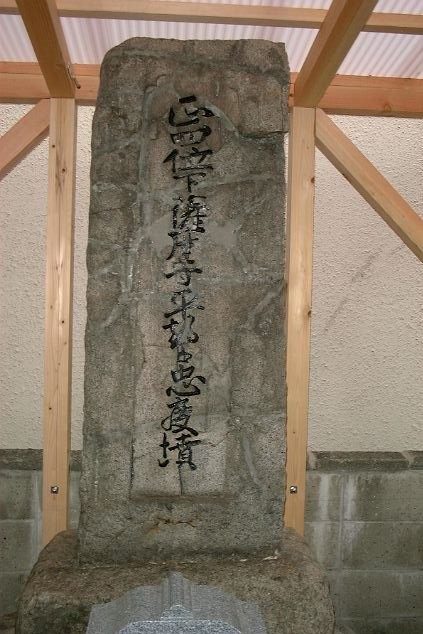 正四位下薩摩守平朝臣忠度墳